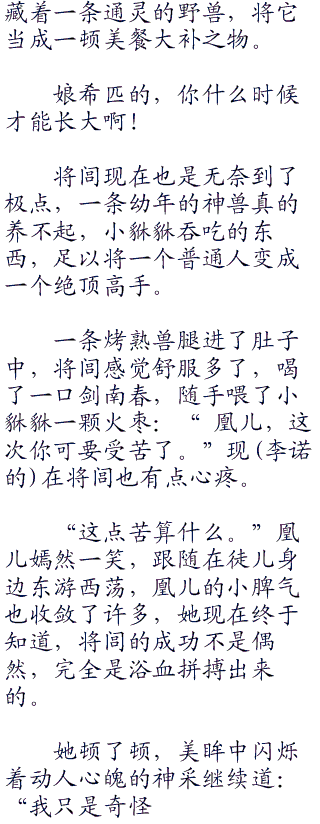 藏着一条通灵的野兽，将它
当成一顿美餐大补之物。
娘希匹的，你什么时候
才能长大啊！
将闾现在也是无奈到了
极点，一条幼年的神兽真的
养不起，小貅貅吞吃的东
西，足以将一个普通人变成
一个绝顶高手。
一条烤熟兽腿进了肚子
中，将闾感觉舒服多了，喝
了一口剑南春，随手喂了小
貅貅一颗火枣：“ 凰儿，这
次你可要受苦了。”现(李诺
的)在将闾也有点心疼。
“这点苦算什么。”凰
儿嫣然一笑，跟随在徒儿身
边东游西荡，凰儿的小脾气
也收敛了许多，她现在终于
知道，将闾的成功不是偶
然，完全是浴血拼搏出来
的。
她顿了顿，美眸中闪烁
着动人心魄的神采继续道：
“我只是奇怪